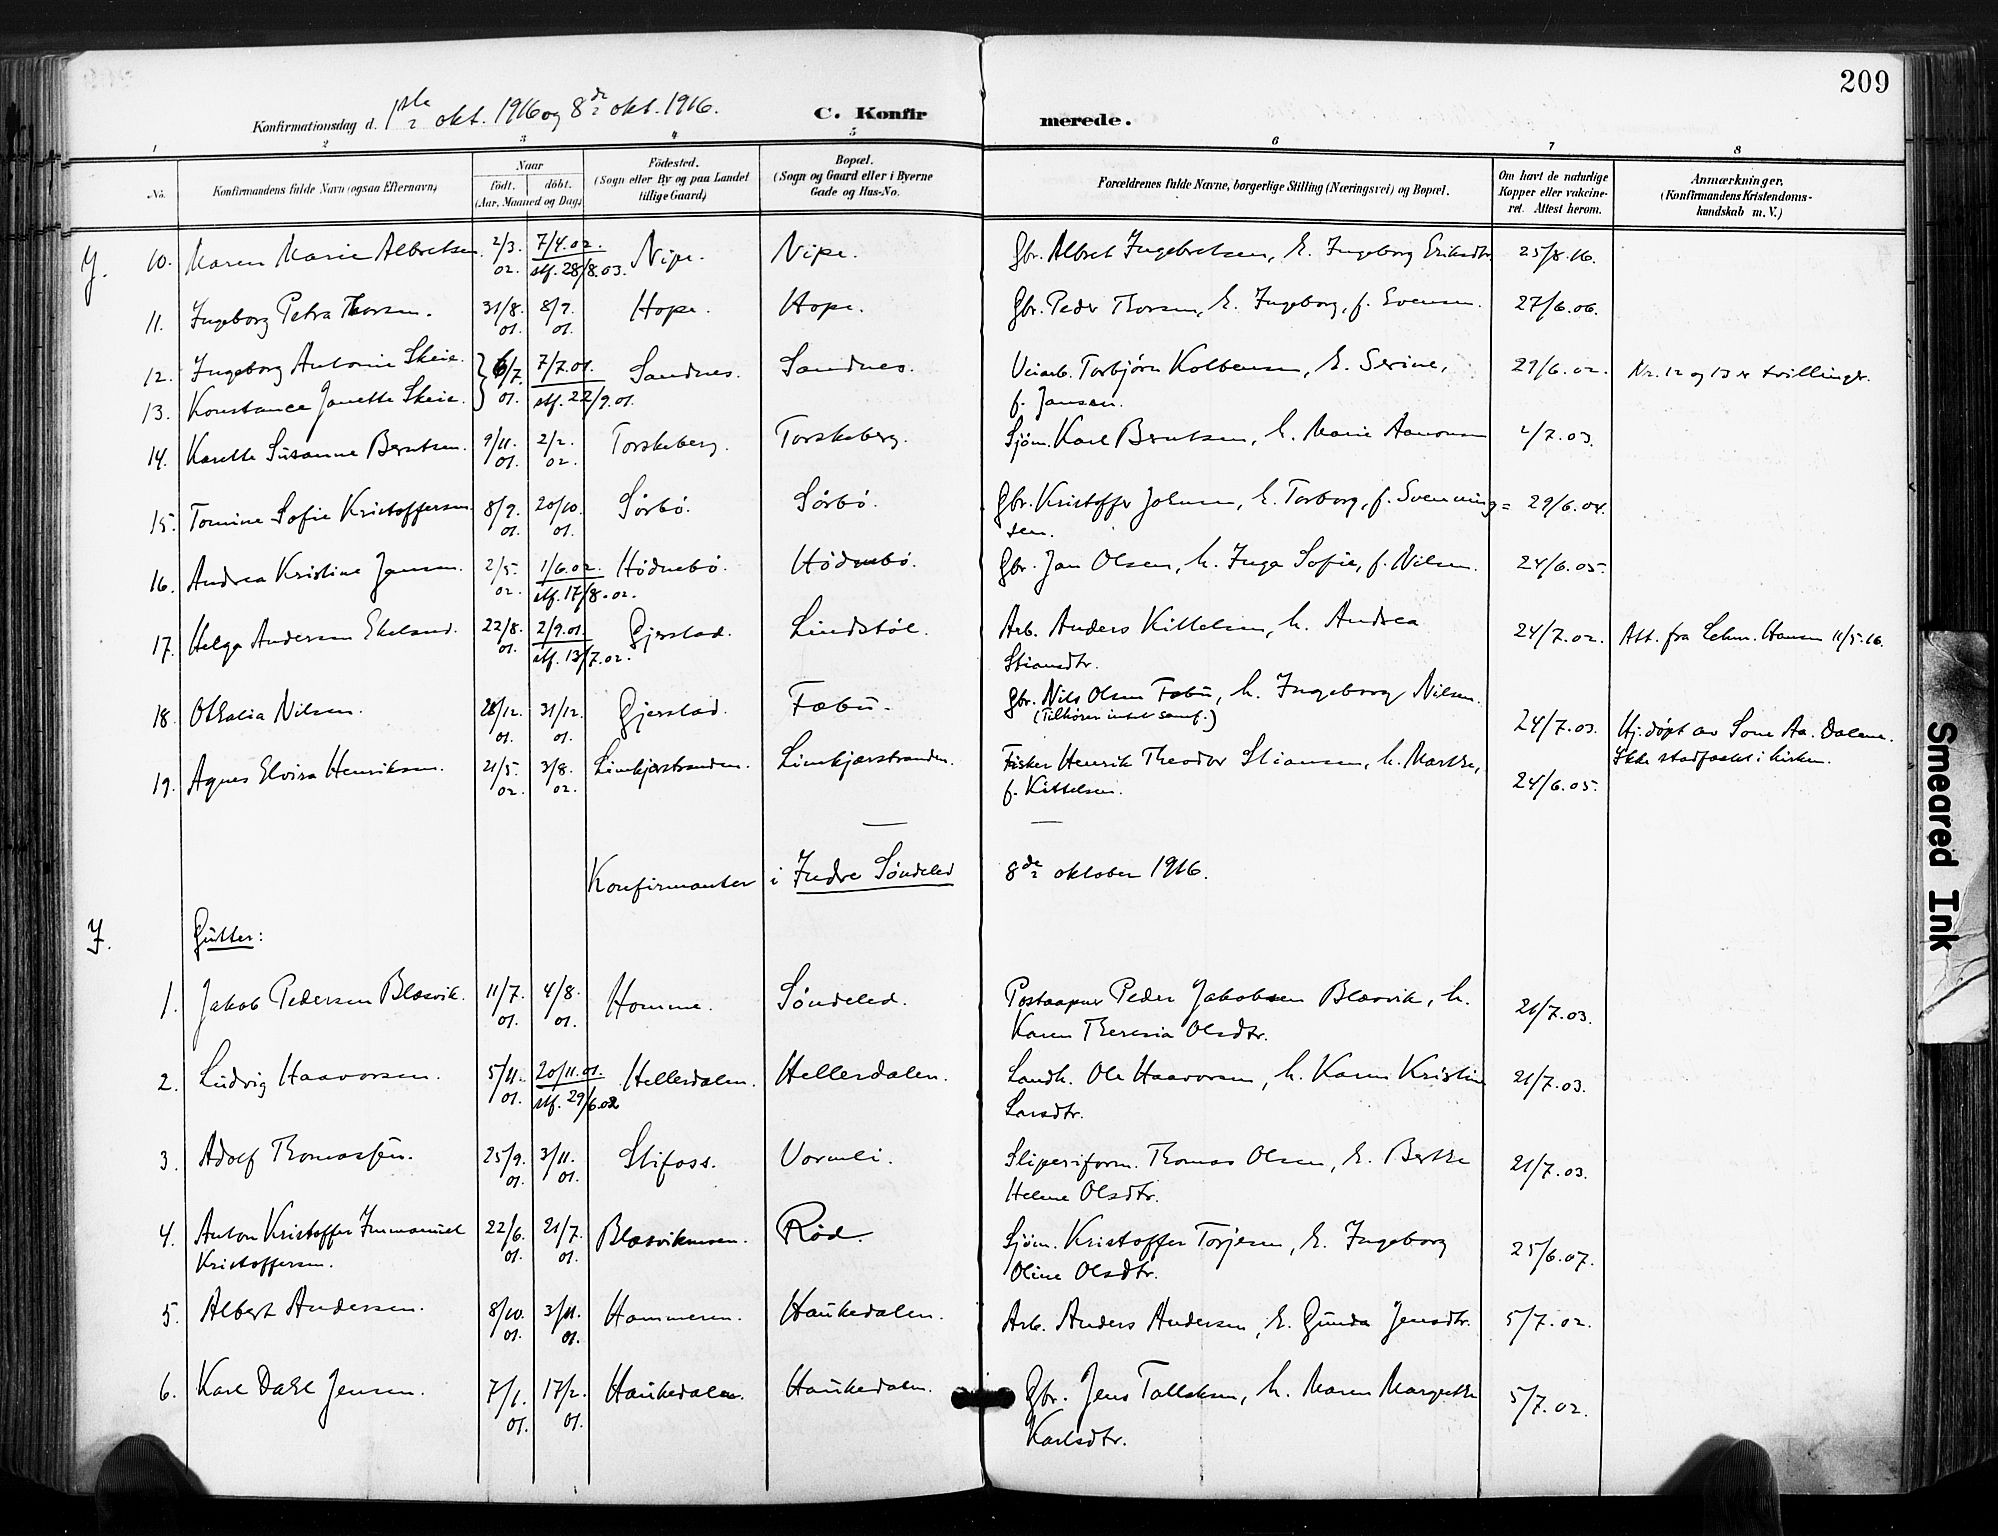 209
Konfirmationsdag d. 1ste okt. 1916 og 8de okt. 1916. C. Konfirmerede.
1 2 3 4 5 6 7 8
No. Konfirmandens fulde Navn (ogsaa Efternavn) Naar födt. döbt. (Aar, Maaned og Dag) Födested. (Sogn eller By og paa Landet tillige Gaard) Bopæl. (Sogn og Gaard eller i Byerne Gade og Hus-No. Forældrenes fulde Navne, borgerlige Stilling (Næringsvei) og Bopæl. Om havt de naturlige Kopper eller vakcineret. Attest herom. Anmærkninger. (Konfirmandens Kristendomskundskab m. V.)
10. Maren Marie Albretsen. 2/3. 02. 7/4.02. stf. 28/8.03. Nipe. Nipe. Gbr. Albret Ingebretsen, E. Ingeborg Eriksdtr. 25/8.16.
11. Ingeborg Petra Thorsen. 31/8. 01. 8/9. 01. Hope. Hope. Gbr. Peder Thorsen, E. Ingeborg, f. Evensen. 27/6.06.
12. Ingeborg Antonie Skeie. 6/7. 01. 7/7.01. stf. 22/9.01. Sandnes. Sandnes. Veiarb. Torbjörn Kolbensen, E. Serine, f. Jansen. 29/6.02. Nr. 12 og 13 er tvillinger.
13. Konstance Janette Skeie.
14. Karelle Susanne Berntsen. 9/11. 01. 2/2. 02. Torskeberg. Torskeberg. Sjöm. Karl Berntsen, h. Marie Aanonsen 2/7.03.
15. Tomine Sofie Kristoffersen 8/9. 01. 20/10. 01. Sörbö. Sörbö. Gbr. Kristoffer Johnsen, E. Torborg, f. Svenning= sen. 29/6.04.
16. Andrea Kristine Jansen. 2/5. 02. 1/6.02. stf. 17/8.02. Hödnebö. Hödnebö. Gbr. Jan Olsen, h. Inga Sofie, f. Nilsen. 24/6.05.
17. Helga Andersen Ekeland. 22/8. 01. 2/9.01. stf. 13/7.02. Gjerstad. Lindstöl. Arb. Anders Kittelsen, h. Andrea Stiansdtr. 24/7.02. Att. fra Hansen 11/5.16.
18. Othalia Nilsen. 28/12. 01. 31/12. 01. Gjerstad. Fæbu. Gbr. Nils Olsen Fæbu, h. Ingeborg Nilsen. (Tilhörer intet samf.) 24/7.03. Hj. döpt av Sone Aa. Dalene. Ikke stadfæstet i kirken.
19. Agnes Elvira Henriksen. 21/5. 02. 3/8. 02. Limkjærstranden. Limkjærstranden. Fisker Henrik Theodor Stiansen, h. Marthe, f. Kittelsen. 24/6.05.
Konfirmanter i Indre Söndeled 8de oktober 1916.
Gutter:
1. Jakob Pedersen Blæsvik. 11/7. 01. 4/8. 01. Homme. Söndeled. Postaapner Peder Jakobsen Blæsvik, h. Karen Theresia Olsdtr. 21/7.03.
2. Ludvig Haavorsen. 5/11. 01. 20/11.01. stf. 29/6.02 Hellersdalen. Hellersdalen. Landh. Ole Haavorsen, h. Karen Kristine Larsdtr. 21/7.03.
3. Adolf Thomassen. 25/9. 01. 3/11. 01. Stifoss. Vormli. Sliperiform. Thomas Olsen, E. Berthe Helene Olsdtr. 21/7.03.
4. Anton Kristoffer Immanuel Kristoffersen. 22/6. 01. 21/7. 01. Blæsvikmoen. Röd. Sjöm. Kristoffer Torjesen, E. Ingeborg Oline Olsdtr. 25/6.07.
5. Albert Andersen. 8/10. 01. 3/11. 01. Hammeren. Haukedalen. Arb. Anders Andersen, E. Gunda Jensdtr. 5/7.02.
6. Karl Dahl Jensen. 7/1. 01. 17/2. 01. Haukedalen. Haukedalen. Gbr. Jens Tallaksen, h. Maren Margrethe Karlsdtr. 5/7.02.
Smeared Ink